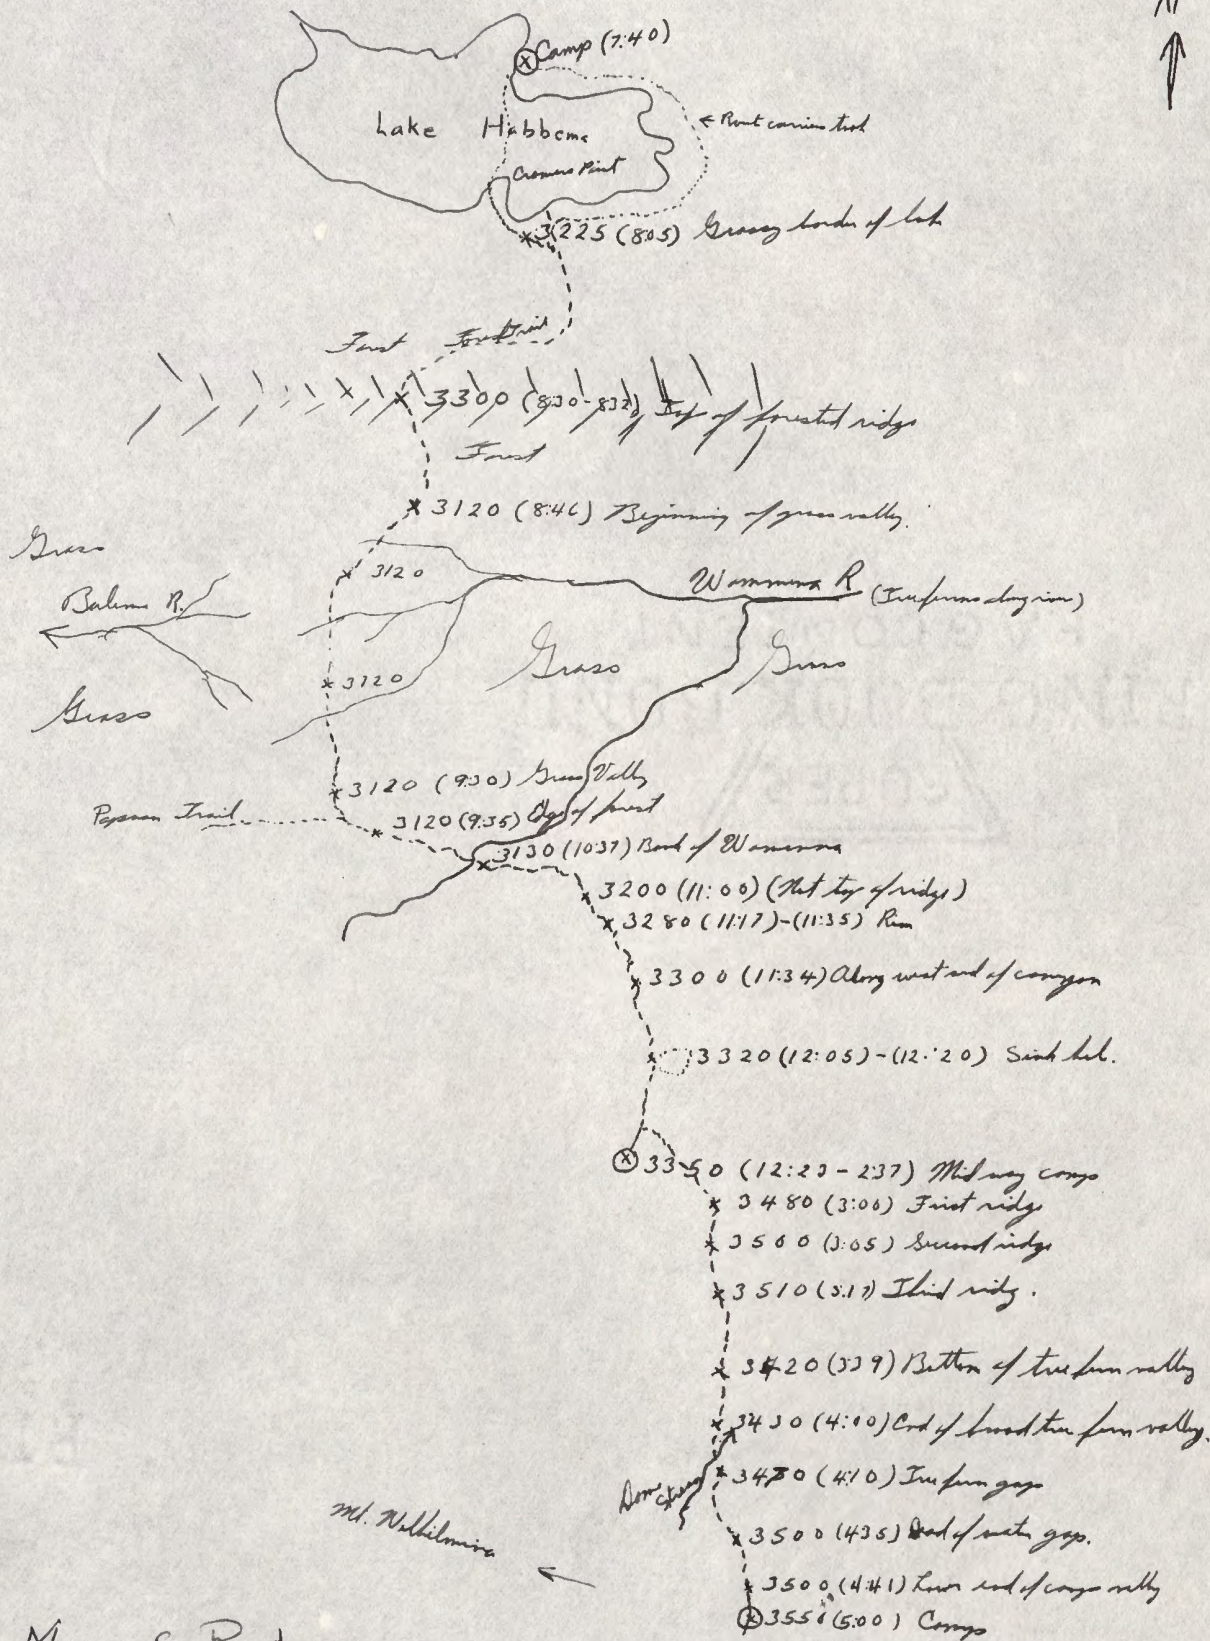 N
Camp (7:40)
← Rout carriers took
Lake Habbema
Cromers Point
3225 (8:05) Grassy border of lake
Forest Forest Trail
3300 (8:30-832) Top of forested ridge
Forest
3120 (8:46) Beginning of grass valley.
Grass
3120
Wamena R (Tree ferns along river)
Balim R.
Grass Grass
3120
Grass
3120 (9:30) Grass Valley
Papuan Trail
3120 (9:35) Edge of forest
3130 (10:37) Bank of Wamena
3200 (11:00) (Not top of ridge)
3280 (11:17)-(11:35) Rim
3300 (11:34) Along west end of canyon
3320 (12:05)-(12:20) Sink hole.
3350 (12:23-237) Midway camp
3480 (3:00) First ridge
3500 (3:05) Second ridge
3510 (3:17) Third ridge.
3420 (339) Bottom of tree fern valley
3430 (4:00) End of broad tree fern valley.
3470 (4:10) Tree fern gap
Mt. Wilhelmina
3500 (435) of water gap.
3500 (4:41) Lower end of camp valley
3550 (5:00) Camp